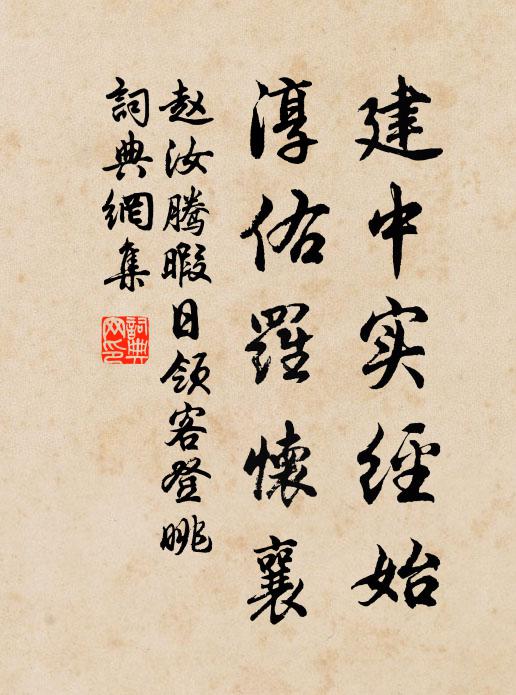 建中实经始
淳佑羅懷襄
赵汝腾暇日领客登眺
詞典網集
詞典
网印